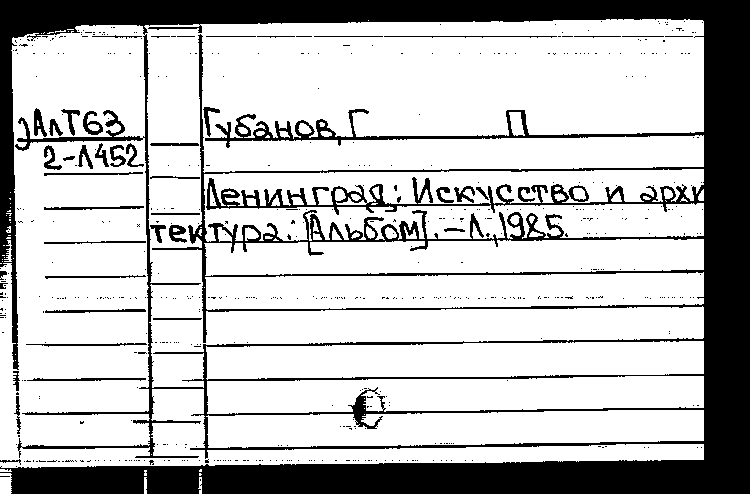 эАлТ63
2-Л452
Губанов, Г П
Ленинград: Искусство и архи
тектура: [Альбом]. - Л., 1985.